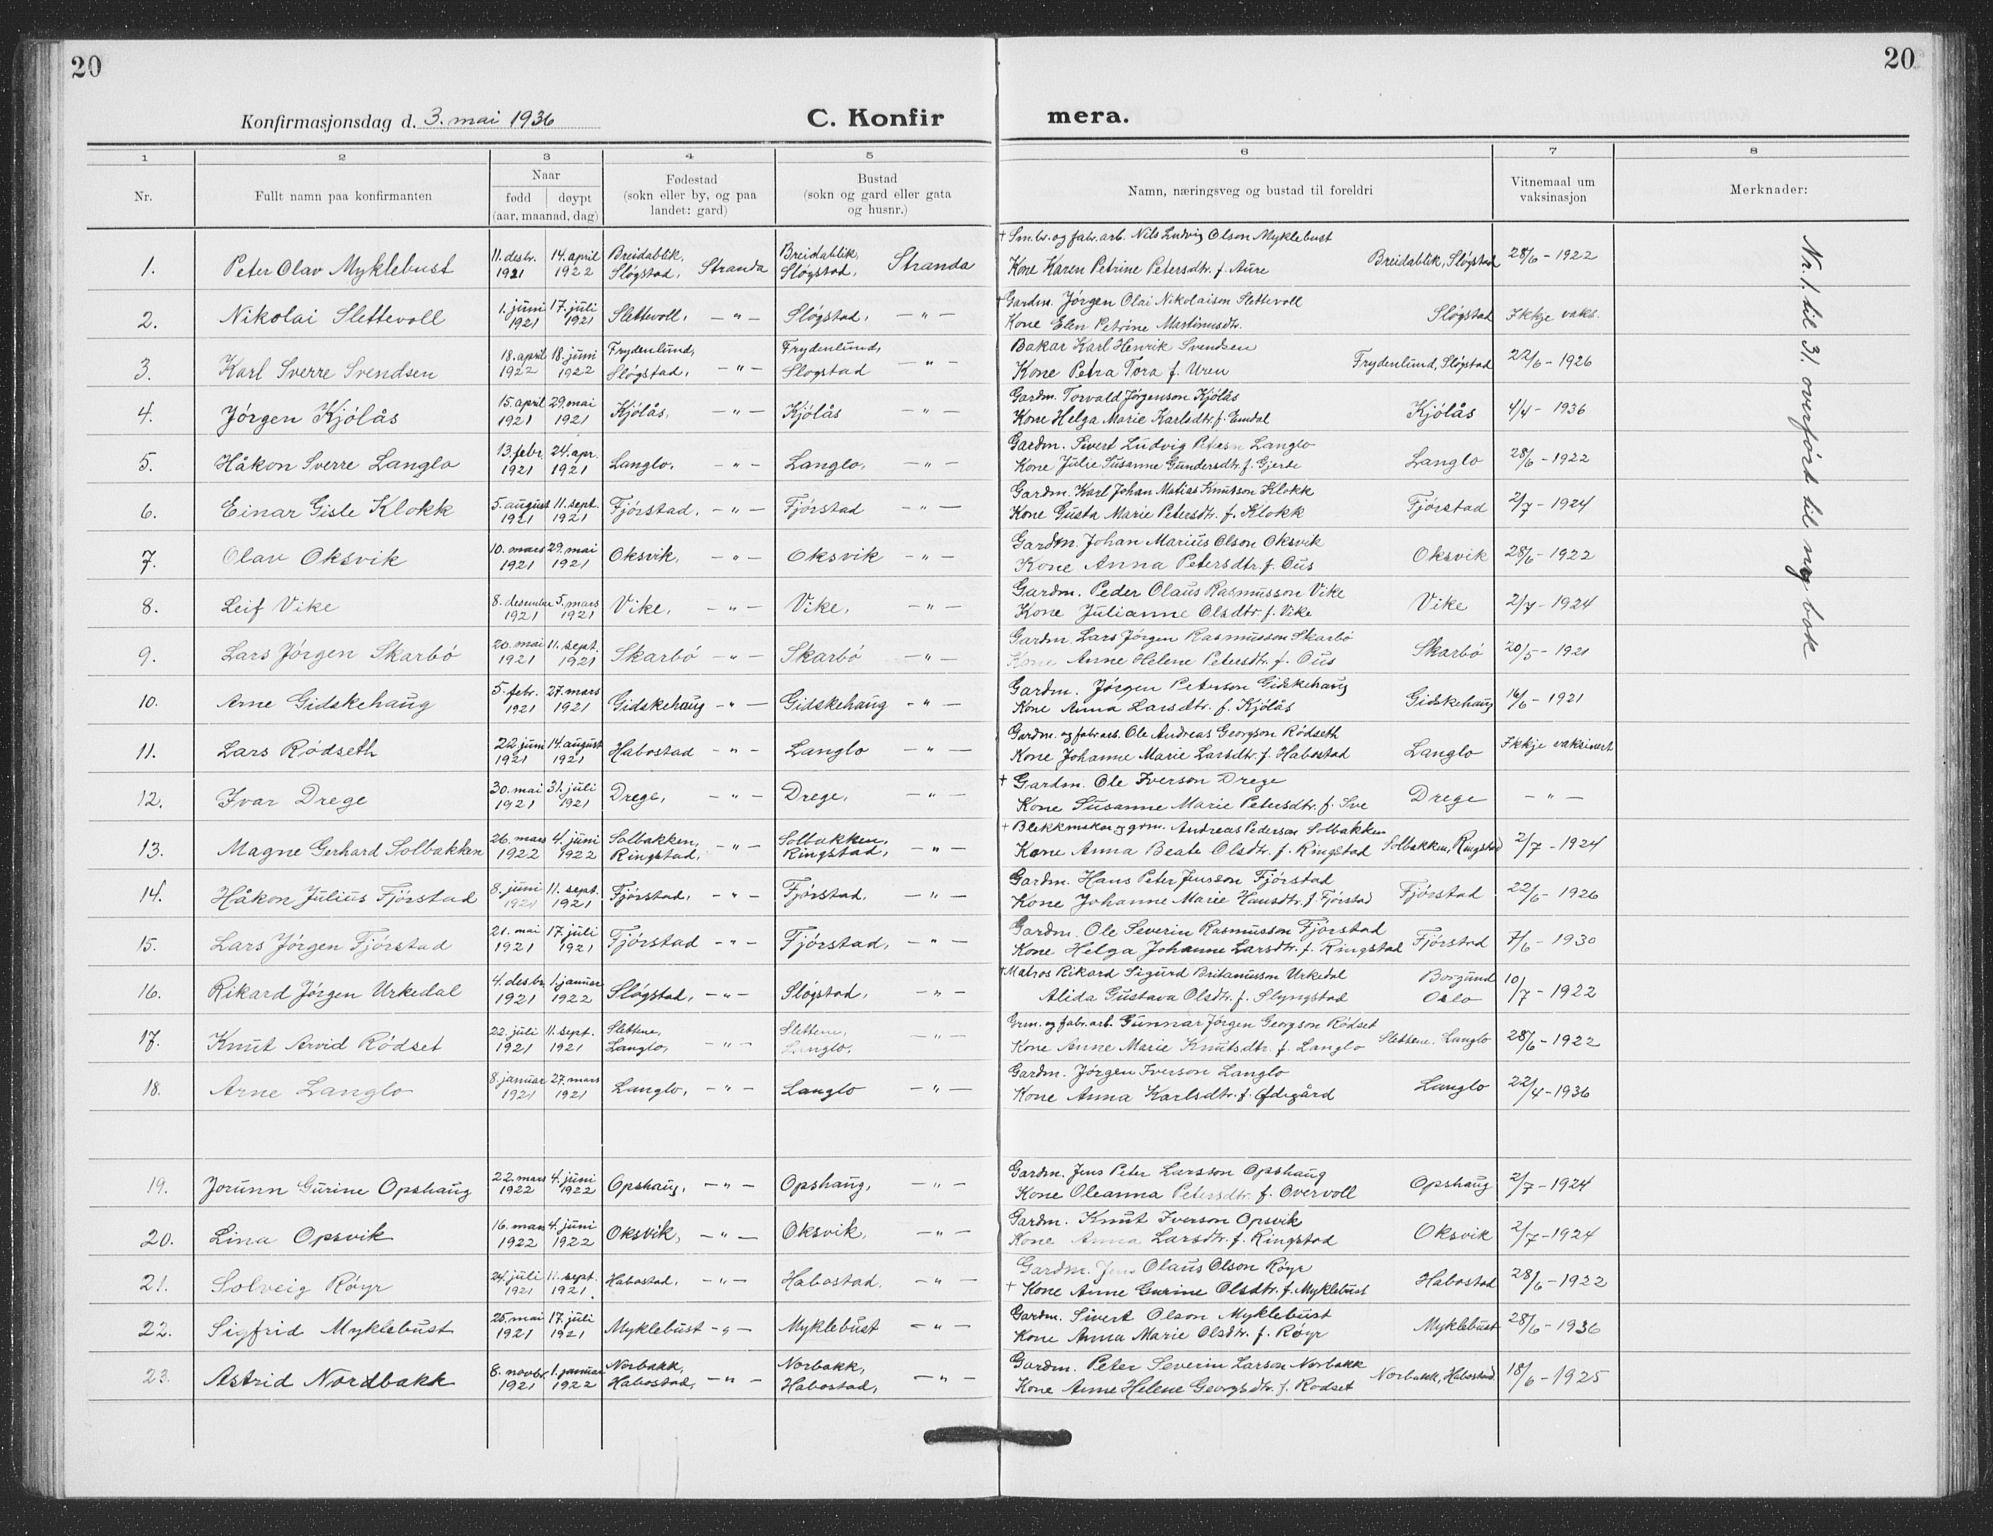 20
20
Konfirmasjonsdag d. 3. mai 1936
C. Konfir mera.
1 2 3 4 5 6 7 8
Nr. Fullt namn paa konfirmanten Naar Fødestad Bustad Namn, næringsveg og bustad til foreldri Vitnemaal um Merknader:
fødd døypt (sokn eller by, og paa (sokn og gard eller gata vaksinasjon
(aar, maanad, dag) landet: gard) og husnr.)
Nr. 1. til 31. overført til ny bok
† Sm.br. og fabr.arb. Nils Ludvig Olson Myklebust
1. Peter Olav Myklebust 11. desbr. 14. april Breidablik, Breidablik, Breidablik, Sløgstad 28/6 - 1922
1921 1922 Sløgstad, Stranda Sløgstad, Stranda Kone Karen Petrine Petersdtr. f. Aure
2. Nikolai Slettevoll 1. juni 17. juli Slettevoll, - " - Sløgstad, - " - † Gardm. Jørgen Olai Nikolaison Slettevoll Sløgstad Ikkje vaks.
1921 1921 Kone Elen Petrine Martinusdtr.
3. Karl Sverre Svendsen 18. april 18. juni Frydenlund, Frydenlund, Bakar Karl Henrik Svendsen Frydenlund, Sløgstad 22/6 - 1926
1922 1922 Sløgstad, - " - Sløgstad - " - Kone Petra Tora f. Uren
4. Jørgen Kjølås 15. april 29. mai Kjølås, - " - Kjølås - " - Gardm. Torvald Jørgenson Kjølås Kjølås 4/4 - 1936
1921 1921 Kone Helga Marie Karlsdtr. f. Emdal
5. Håkon Sverre Langlo 13. febr. 24. apr. Langlo, - " - Langlo, - " - Gardm. Sivert Ludvig Peterson Langlo Langlo 28/6 - 1922
1921 1921 Kone Julie Susanne Gundersdtr. f. Gjerde
6. Einar Gisle Klokk 5. august 11. sept. Fjørstad, - " - Fjørstad - " - Gardm. Karl Johan Matias Knutson Klokk Fjørstad 2/7 - 1924
1921 1921 Kone Gusta Marie Petersdtr. f. Klokk
7. Olav Oksvik 10. mars 29. mai Oksvik, - " - Oksvik - " - Gardm. Johan Marius Olson Oksvik Oksvik 28/6 - 1922
1921 1921 Kone Anna Petersdtr. f. Ous
8. Leif Vike 8. desember 5. mars Vike, - " - Vike, - " - Gardm. Peder Olaus Rasmusson Vike Vike 2/7 - 1924
1921 1921 Kone Julianne Olsdtr f. Vike
9. Lars Jørgen Skarbø 20. mai 11. sept. Skarbø - " - Skarbø - " - Gardm Lars Jørgen Rasmusson Skarbø Skarbø 20/5 - 1921
1921 1921 Kone Anne Helene Petersdtr. f. Ous
10. Arne Gidskehaug 5. febr. 27. mars Gidskehaug - " - Gidskehaug - " - Gardm. Jørgen Peterson Gidskehaug Gidskehaug 16/6 - 1921
1921 1921 Kone Anna Larsdtr. f. Kjølås
11. Lars Rødseth 22. juni 14. august Habostad - " - Langlo - " - Gardm. og fab.arb. Ole Andreas Georgson Rødseth Langlo Ikkje vaksinert
1921 1921 Kone Johanne Marie Larsdtr. f. Habostad
12. Ivar Drege 30. mai 31. juli Drege, - " - Drege, - " - † Gardm. Ole Iverson Drege Drege - " -
1921 1921 Kone Susanne Marie Petersdtr. f. Sve
13. Magne Gerhard Solbakken 26. mars 4. juni Solbakken, Solbakken, † Blekkmakar og grm. Andreas Pederson Solbakken Solbakken, Ringstad 2/7 - 1924
1922 1922 Ringstad, - " - Ringstad, - " - Kone Anna Beate Olsdtr. f. Ringstad
14. Håkon Julius Fjørstad 8. juni 11. sept. Fjørstad, - " - Fjørstad, - " - Gardm. Hans Peter Jensson Fjørstad Fjørstad 22/6 - 1926
1921 1921 Kone Johanne Marie Hansdtr. f. Fjørstad
15. Lars Jørgen Fjørstad 21. mai 17. juli Fjørstad - " - Fjørstad, - " - Gardm. Ole Severin Rasmusson Fjørstad Fjørstad 7/6 - 1930
1921 1921 Kone Helga Johanne Larsdtr. f. Ringstad
16. Rikard Jørgen Urkedal 4. desbr. 1. januar Sløgstad, - " - Sløgstad, - " - † Matros Rikard Sigurd Britanusson Urkedal Borgund 10/7 - 1922
1921 1922 Alida Gustava Olsdtr. f. Slyngstad Oslo
17. Knut Arvid Rødset 22. juli 11. sept. Slettene, Slettene, Grm. og fabr.arb. Gunnar Jørgen Georgson Rødset Slettene, Langlo 28/6 - 1922
1921 1921 Langlo, - " - Langlo, - " - Kone Anne Marie Knutsdtr. f. Langlo
18. Arne Langlo 8. januar 27. mars Langlo, - " - Langlo - " - Gardm. Jørgen Iverson Langlo Langlo 22/4 - 1936
1921 1921 Kone Anna Karlsdtr. f. Ødegård
19. Jorunn Gurine Opshaug 22. mars 4. juni Opshaug, - " - Opshaug, - " - Gardm. Jens Peter Larsson Opshaug Opshaug 2/7 - 1924
1922 1922 Kone Oleanna Petersdtr. f. Overvoll
20. Lina Opsvik 16. mars 4. juni Oksvik, - " - Oksvik, - " - Gardm. Knut Iverson Opsvik Oksvik 2/7 - 1924
1922 1922 Kone Anna Larsdtr. f. Ringstad
21. Solveig Røyr 24. juli 11. sept. Habostad, - " - Habostad. - " - Gardm. Jens Olaus Olson Røyr Habostad 28/6 - 1922
1921 1921. † Kone Anne Gurine Olsdtr. f. Myklebust
22. Sigfrid Myklebust 25. mai 17. juli Myklebust - " - Myklebust - " - Gardm. Sivert Olson Myklebust Myklebust 28/6 - 1936
1921 1921 Kone Anna Marie Olsdtr. f. Røyr
23. Astrid Nordbakk 8. novbr. 1. januar Norbakk, Norbakk, Gardm. Peter Severin Larson Norbakk Norbakk, Habostad. 18/6 - 1925
1921 1922 Habostad, - " - Habostad, - " - Kone Anne Helene Georgsdtr. f. Rødset